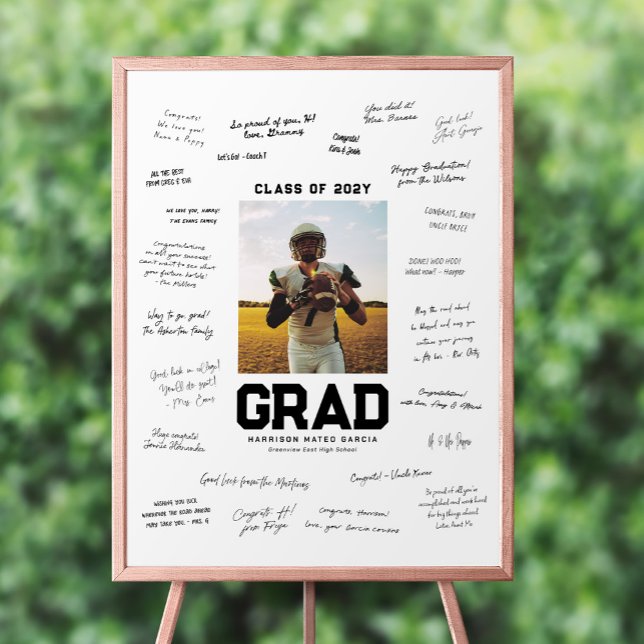 Congrats!
We love you!
Nana & Poppy
So proud of you, H!
love, Grammy
Let's Go! - Coach T
Congrats!
You did it!
Mrs. Barnes
Good luck!
ALL THE BEST
FROM GREG & EVA
Happy Graduation!
from the Wilsons
CLASS OF 202Y
WE LOVE YOU, HARRY!
THE EVANS FAMILY
CONGRATS, BRO!!
UNCLE BRYCE
Congratulations
on all your success!
can't wait to see what
your future holds!
- the Millers
DONE! WOO HOO!
What now? - Harper
Way to go, grad!
The Asherton Family
May the road ahead
be blessed and may you
continue your journey
Good luck in college!
You'll do great!
- Mrs. Evans
GRAD
HARRISON MATEO GARCIA
Greenview East High School
Congratulations!
with love, Amy & Micah
Huge congrats!
Jennie Hernandez
Good luck from the Martinos
Congrats! - Uncle Xavier
WISHING YOU LUCK
WHEREVER THE ROAD AHEAD
MAY TAKE YOU. - MRS. G
Congrats, H!
from Freya
Congrats, Harrison!
love, your Garcia cousins
So proud of all you've
accomplished and work hard
for big things ahead!
Love, Aunt Mo